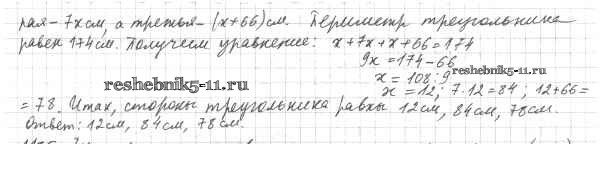 рая - 7х см, а третья - (х+66) см. Периметр треугольника
равен 174 см. Получаем уравнение: х+7х+х+66=174
9х=174-66
х=108:9
reshebnik5-11.ru
reshebnik5-11.ru
х=12; 7·12=84; 12+66=
=78. Итак, стороны треугольника равны 12 см, 84 см, 78 см.
Ответ: 12 см, 84 см, 78 см.